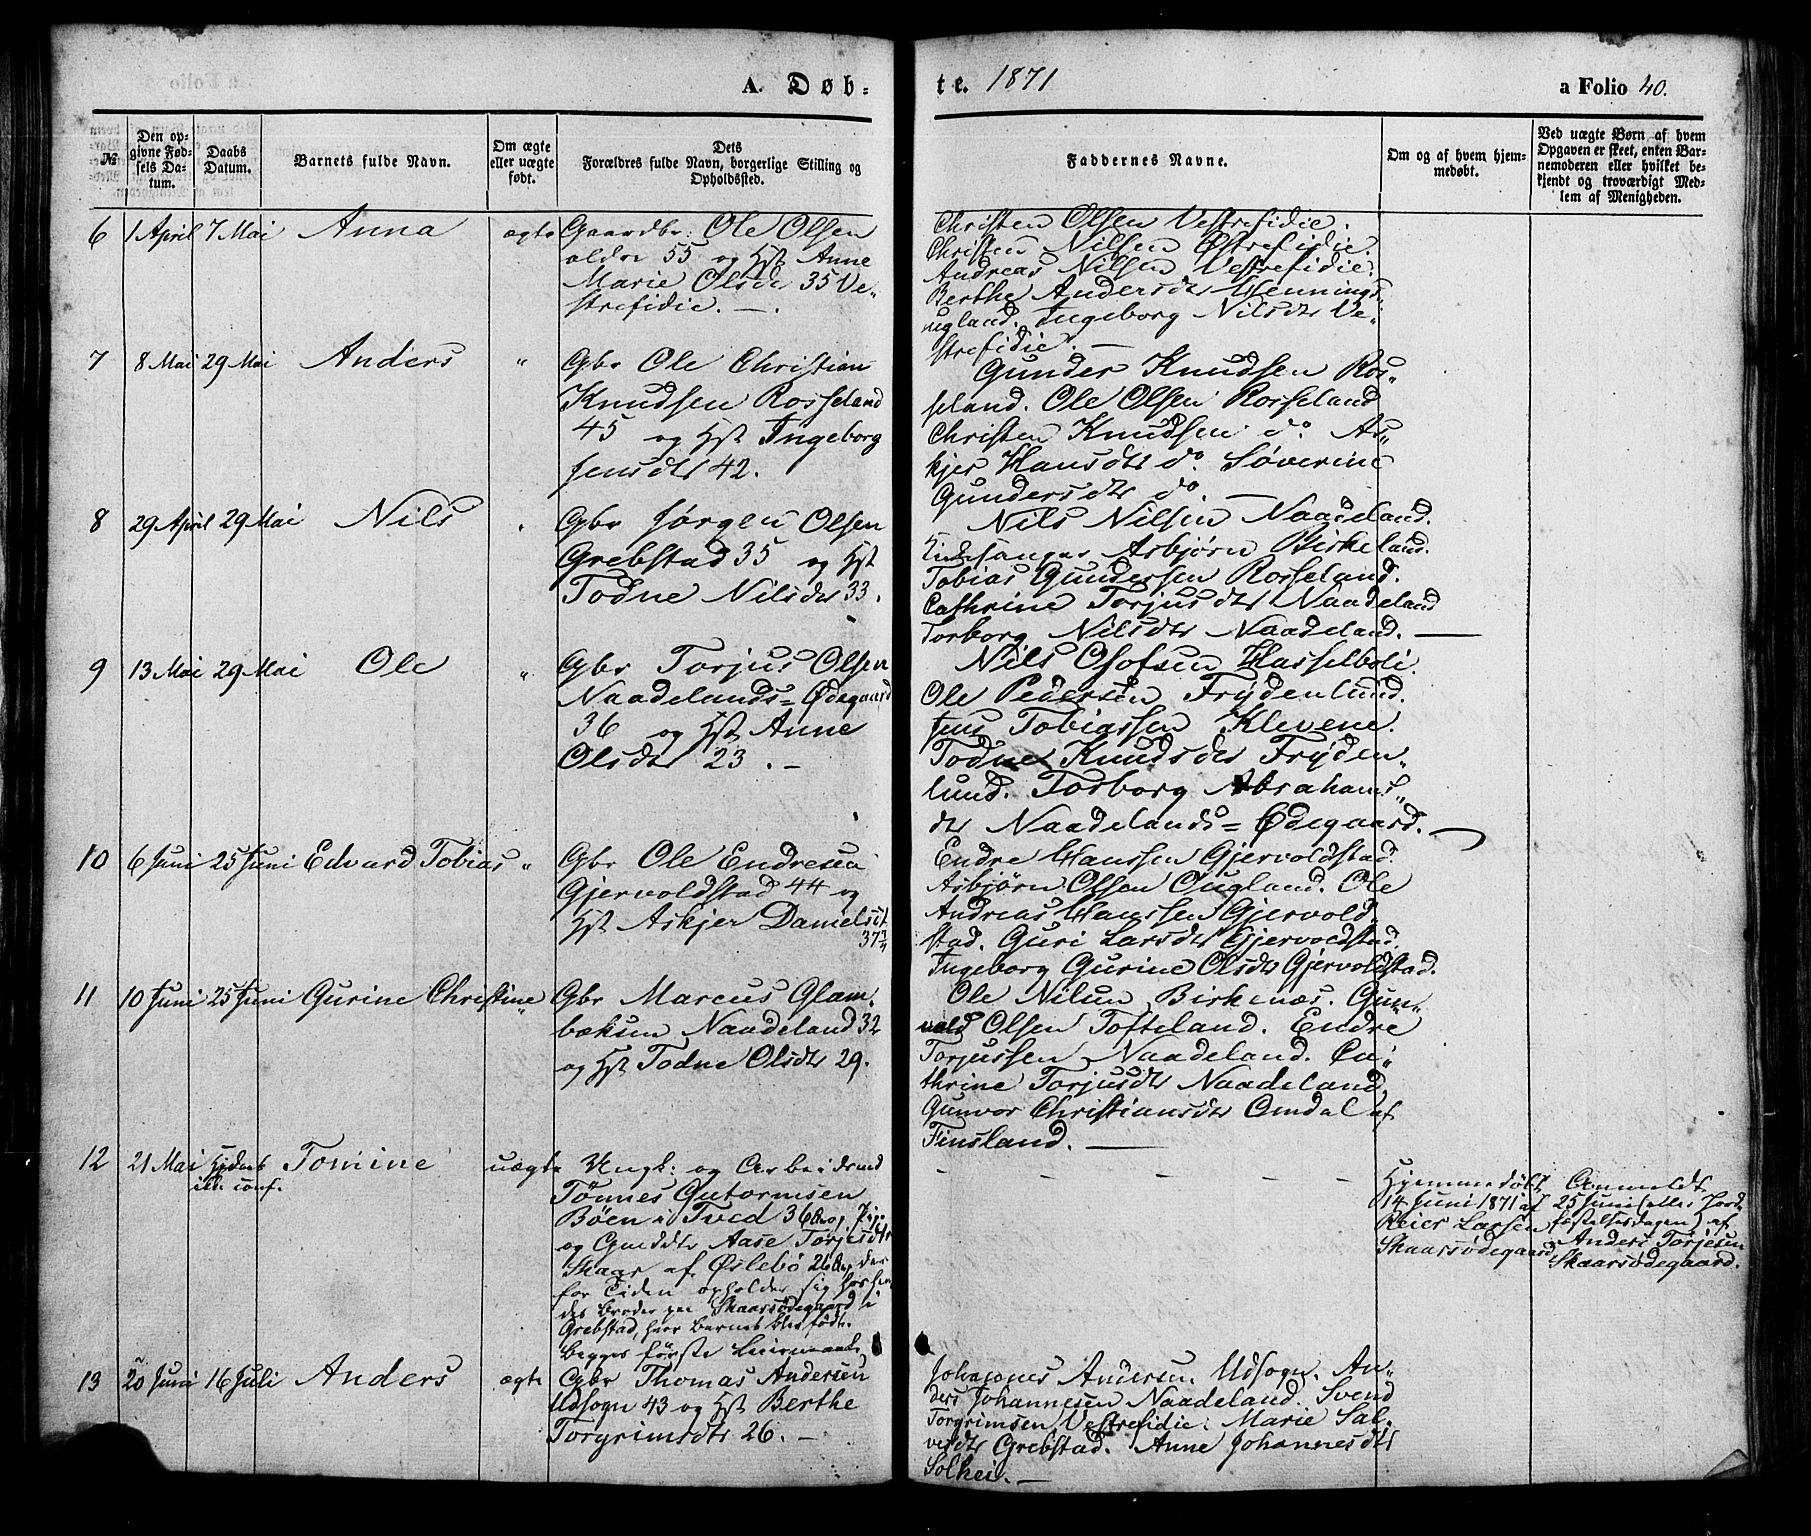 A. Døb-
te. 1871
a Folio 40.
№
Den op-
givne Fød-
sels Da-
tum.
Daabs
Datum.
Barnets fulde Navn.
Om ægte
eller uægte
født.
Dets
Forældres fulde Navn, borgerlige Stilling og
Opholdssted.
Faddernes Navne.
Om og af hvem hjem-
medøbt.
Ved uægte Børn af hvem
Opgaven er skeet, enten Bar-
nemoderen eller hvilket be-
kjendt og troværdigt Med-
lem af Menigheden.
6 1 April 7 Mai Anna ægte
Gaardbr: Ole Olsen
alder 55 og Hst Anne
Marie Olsdr 35 Ve-
strefidie. —.
Christen Olsen Vestrefidie.
Christen Nilsen Østrefidie.
Andreas Nilsen Vestrefidie.
Berthe Andersdtr Hennings-
ugland. Ingeborg Nilsdtr Ve-
strefidie. —
7 8 Mai 29 Mai Anders "
Gbr Ole Christian
Knudsen Rosseland
45 og Hst Ingeborg
Jensdtr 42.
Gunder Knudsen Ros-
seland. Ole Olsen Rosseland
Christen Knudsen do. As-
kjer Hansdtr do. Søverine
Gundersdtr do. —
8 29 April 29 Mai Nils "
Gbr Jørgen Olsen
Grebstad 35 og Hst
Todne Nilsdtr 33.
Nils Nilsen Naadeland.
Kirkesanger Asbjørn Birkeland.
Tobias Gundersen Rosseland.
Cathrine Torjusdtr Naadeland
Torborg Nilsdtr Naadeland. —
9 13 Mai 29 Mai Ole "
Gbr Torjus Olsen
Naadelands=Ødegaard
36 og Hst Anne
Olsdtr 23. —
Nils Olofsen Hasselboli.
Ole Pedersen Frydenlund.
Jens Tobiassen Klevene.
Todne Knudsdtr Fryden-
lund. Torborg Abrahams-
dtr Naadelands=Ødegaard. —
10 6 Juni 25 Juni Edvard Tobias "
Gbr Ole Endresen
Gjervoldstad 44 og
Hst Askjer Danielsdt
37¾
Endre Hanssen Gjervoldstad.
Asbjørn Olsen Ougland. Ole
Andreas Hanssen Gjervold-
stad. Guri Larsdtr Gjervoldstad.
Ingeborg Gurine Olsdtr Gjervoldstad.
11 10 Juni 25 Juni Gurine Christine "
Gbr Marcus Glam-
bæksen Naadeland 32
og Hst Todne Olsdtr 29.
Ole Nilsen Birkenæs. Gun-
vald Olsen Tofteland. Endre
Torjussen Naadeland. Ca-
thrine Torjusdtr Naadeland.
Gunvor Christiansdtr Omdal af
Finsland. —
12 21 Mai Hjdøbt Tomine uægte
ikke conf.
Ungk: og Arbeidsmd
Tønnes Gutormsen
Bøen i Tved 36
og Gmddtr Aase Torjesdtr
Skaar af Øslebø 26 der
for Tiden opholder sig hos hen
des Broder paa Skaarsødegaard i
Grebstad, hvor Barnet blev født.
Begges første Leiermaal
Hjemmedøbt
14 Juni 1871 af
Reier Larsen
Skaarsødegaard
Anmeldt
25 Juni
af
Anders Torjesen
Skaarsødegaard.
13 20 Juni 16 Juli Anders ægte
Gbr Thomas Andersen
Udsogn 43 og Hst Berthe
Torgrimsdtr 26. —
Johannes Andersen Udsogn. An-
ders Johannesen Naadeland. Svend
Torgrimsen Vestrefidie. Marie Sal-
vesdtr Grebstad. Anne Johannesdtr
Solhei. —